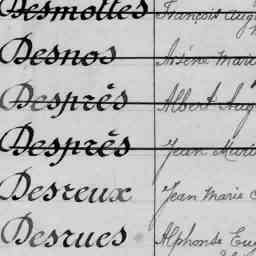 Desmottes François Aug
Desnos Arsène Marie
Després Albert Aug
Després Jean Marie
Desreux Jean Marie
Desrues Alphonse Eug